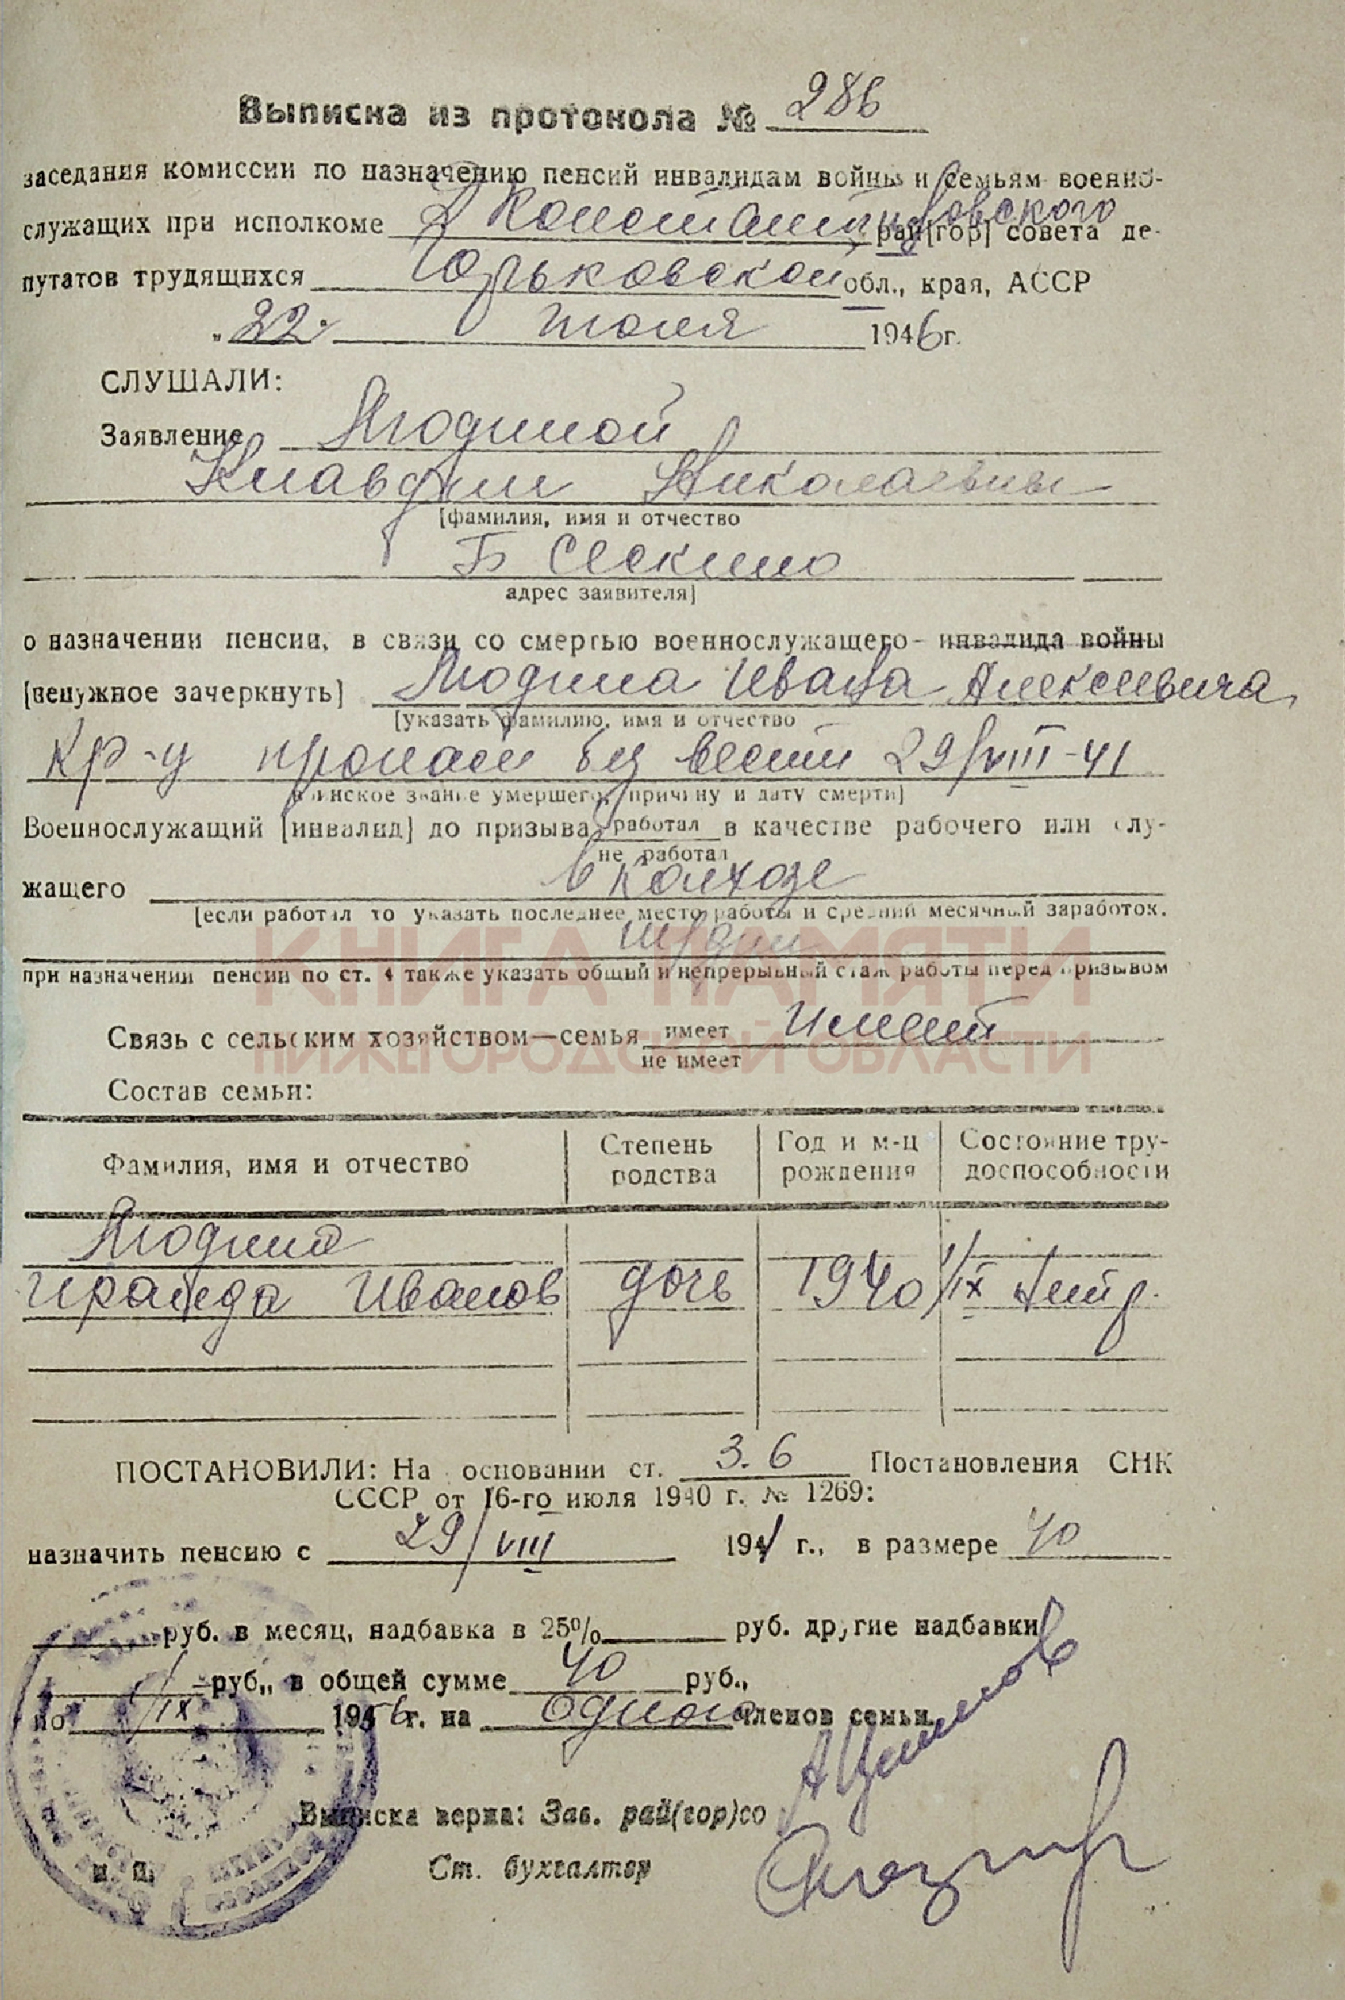 Выписка из протокола № 286
заседания комиссии по назначению пенсий инвалидам войны и семьям военно-
служащих при исполкоме Д Константиновского рай[гор] совета де-
путатов трудящихся Горьковской обл., края, АССР
„22" июля 1946 г.
СЛУШАЛИ:
Заявление Ягодиной
Клавдии Николаевны
[фамилия, имя и отчество
Б Сескино
адрес заявителя]
о назначении пенсии, в связи со смертью военнослужащего - инвалида войны
[ненужное зачеркнуть] Ягодина Ивана Алексеевича,
[указать фамилию, имя и отчество
Кр-ц пропал без вести 29/VIII-41
воинское звание умершего, причину и дату смерти]
Военнослужащий [инвалид] до призыва работал в качестве рабочего или слу-
не работал
жащего в колхозе
[если работал то указать последнее место работы и средний месячный заработок.
при назначении пенсии по ст. 4 также указать общий и непрерывный стаж работы перед призывом
КНИГА ПАМЯТИ
НИЖЕГОРОДСКОЙ ОБЛАСТИ
Связь с сельским хозяйством—семья имеет имеет
не имеет
Состав семьи:
Фамилия, имя и отчество Степень родства Год и м-ц рождения Состояние тру-доспособности
Ягодина
Ираида Иванов дочь 1940 1/IX нетр.
ПОСТАНОВИЛИ: На основании ст. 3.6 Постановления СНК
СССР от 16-го июля 1940 г. № 1269:
назначить пенсию с 29/VIII 1941 г., в размере 40
руб. в месяц, надбавка в 25% руб. другие надбавки
руб., в общей сумме 40 руб.,
по 1/IX 1956 г. на одного членов семьи.
Выписка верна: Зав. рай(гор)со
м. п. Ст. бухгалтер